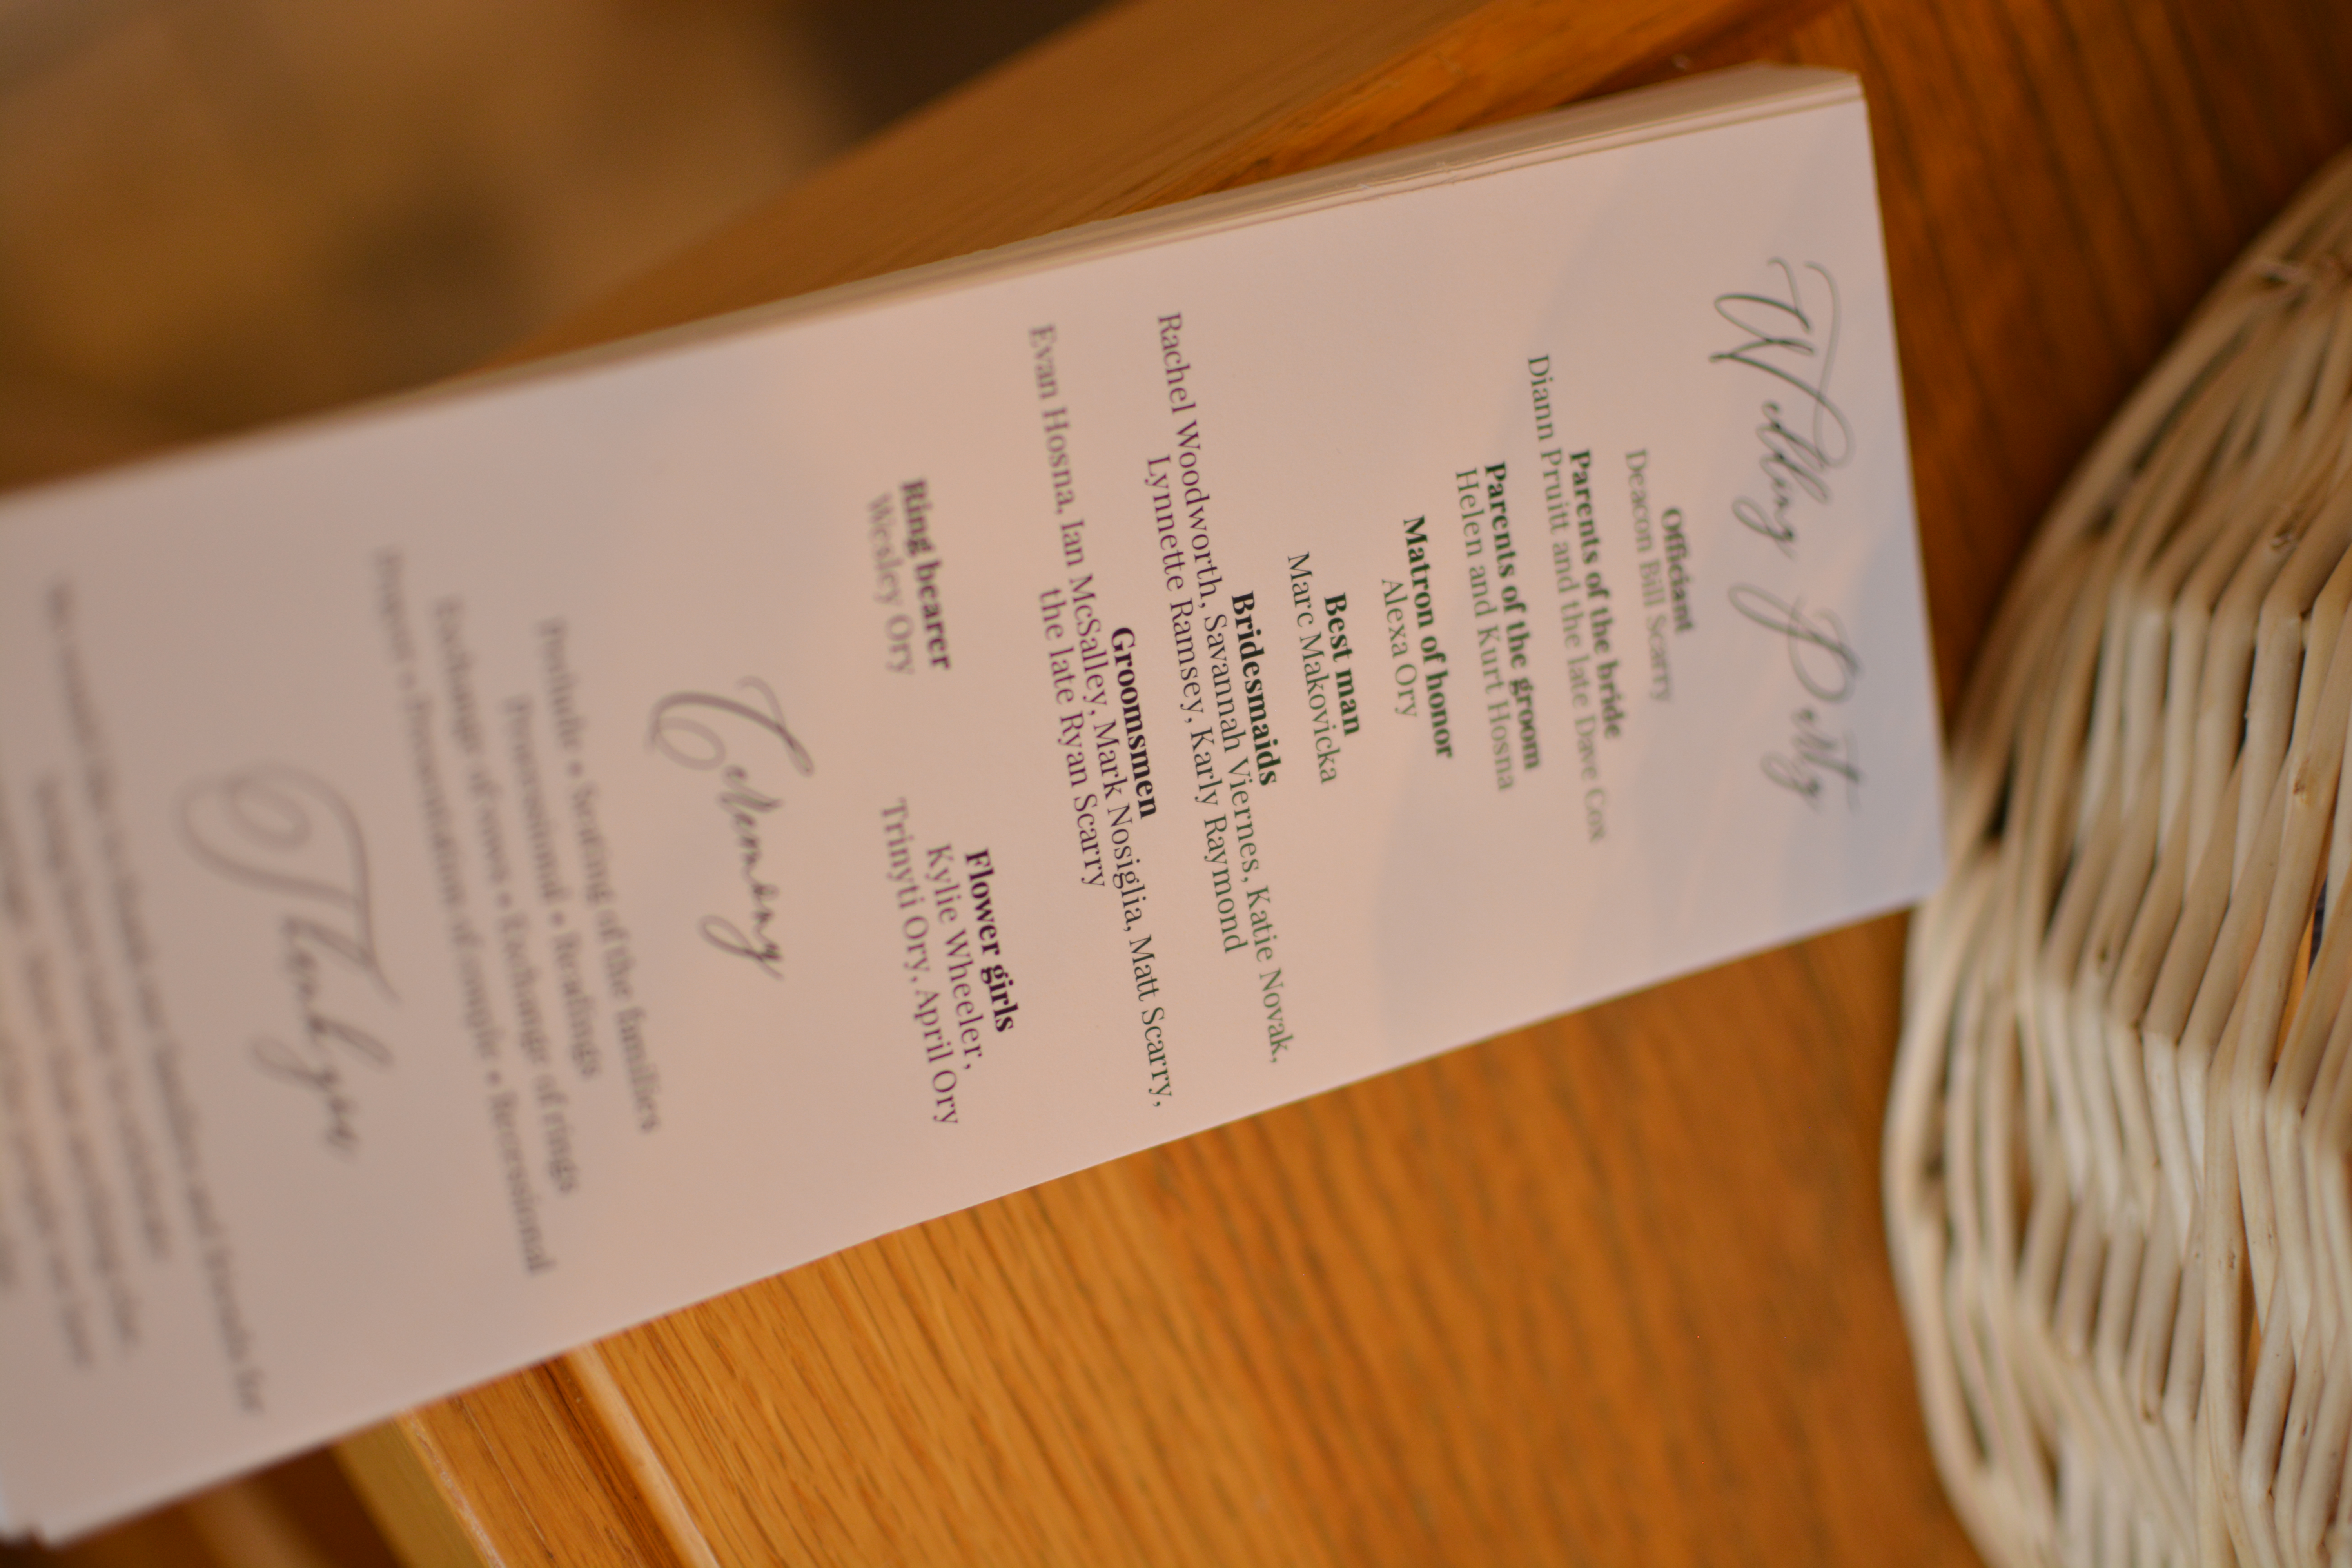 Wedding Party
Officiant
Deacon Bill Scarry
Parents of the bride
Diann Pruitt and the late Dave Cox
Parents of the groom
Helen and Kurt Hosna
Matron of honor
Alexa Ory
Best man
Marc Makovicka
Bridesmaids
Rachel Woodworth, Savannah Viernes, Katie Novak,
Lynnette Ramsey, Karly Raymond
Groomsmen
Evan Hosna, Ian McSalley, Mark Nosiglia, Matt Scarry,
the late Ryan Scarry
Ring bearer
Wesley Ory
Flower girls
Kylie Wheeler,
Trinyti Ory, April Ory
Ceremony
Prelude • Seating of the families
Processional • Readings
Exchange of vows • Exchange of rings
Prayer • Presentation of couple • Recessional
Thank you
We would like to thank our families and friends for